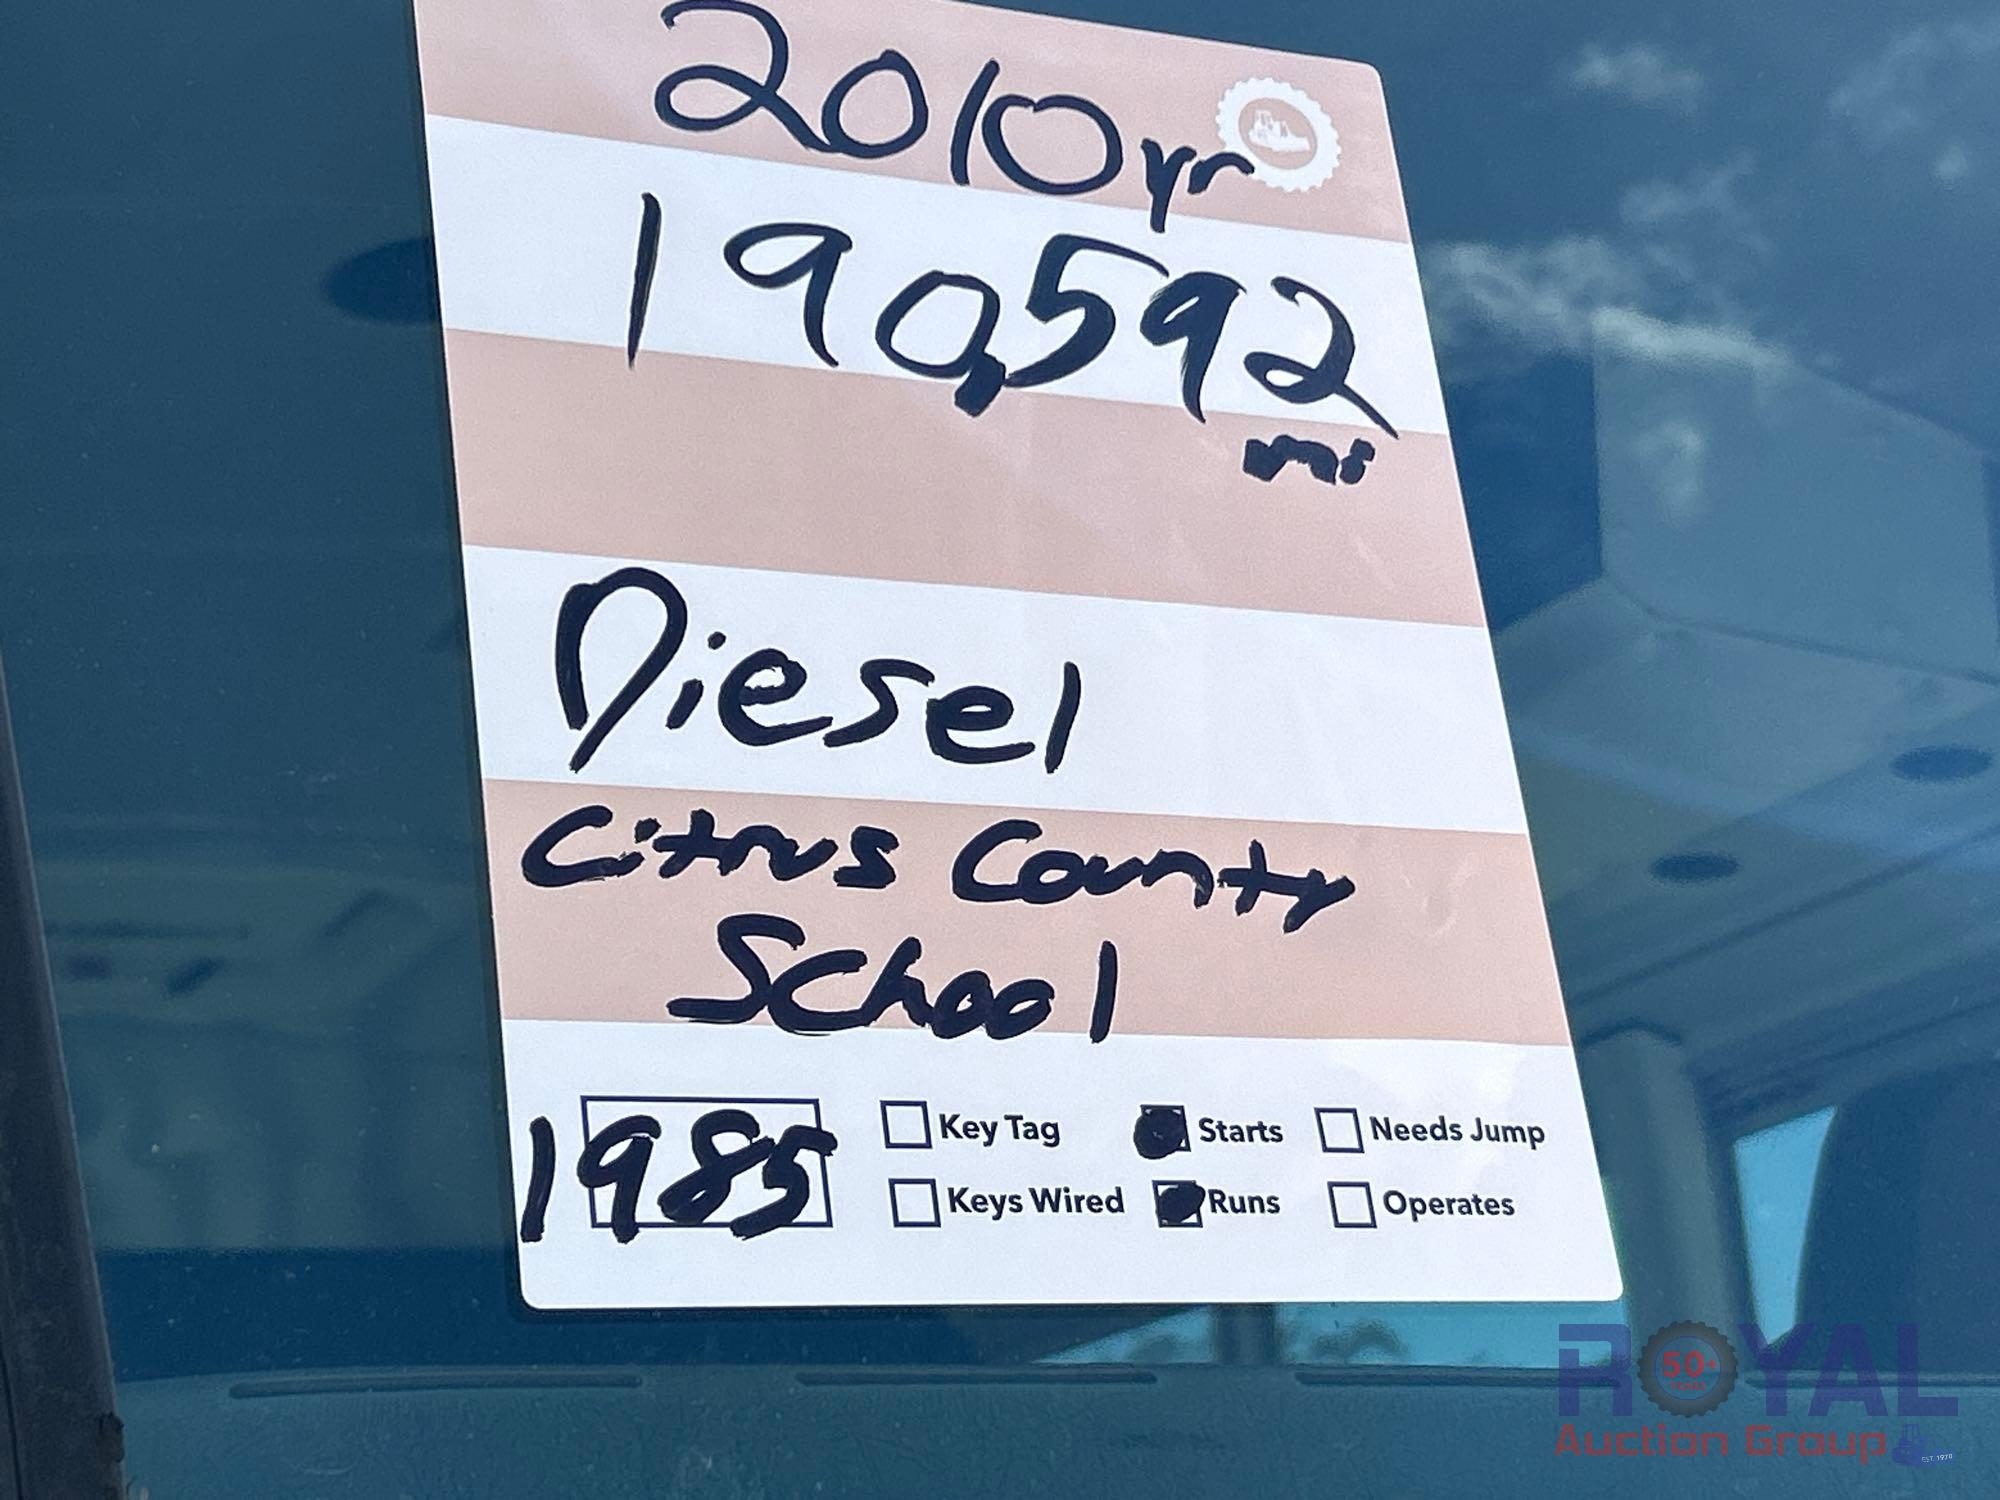 2010yr
190,592
mi
Diesel
Citrus County
School
1985
Key Tag Starts Needs Jump
Keys Wired Runs Operates
ROYAL
50+
YEARS
Auction Group
EST. 1970